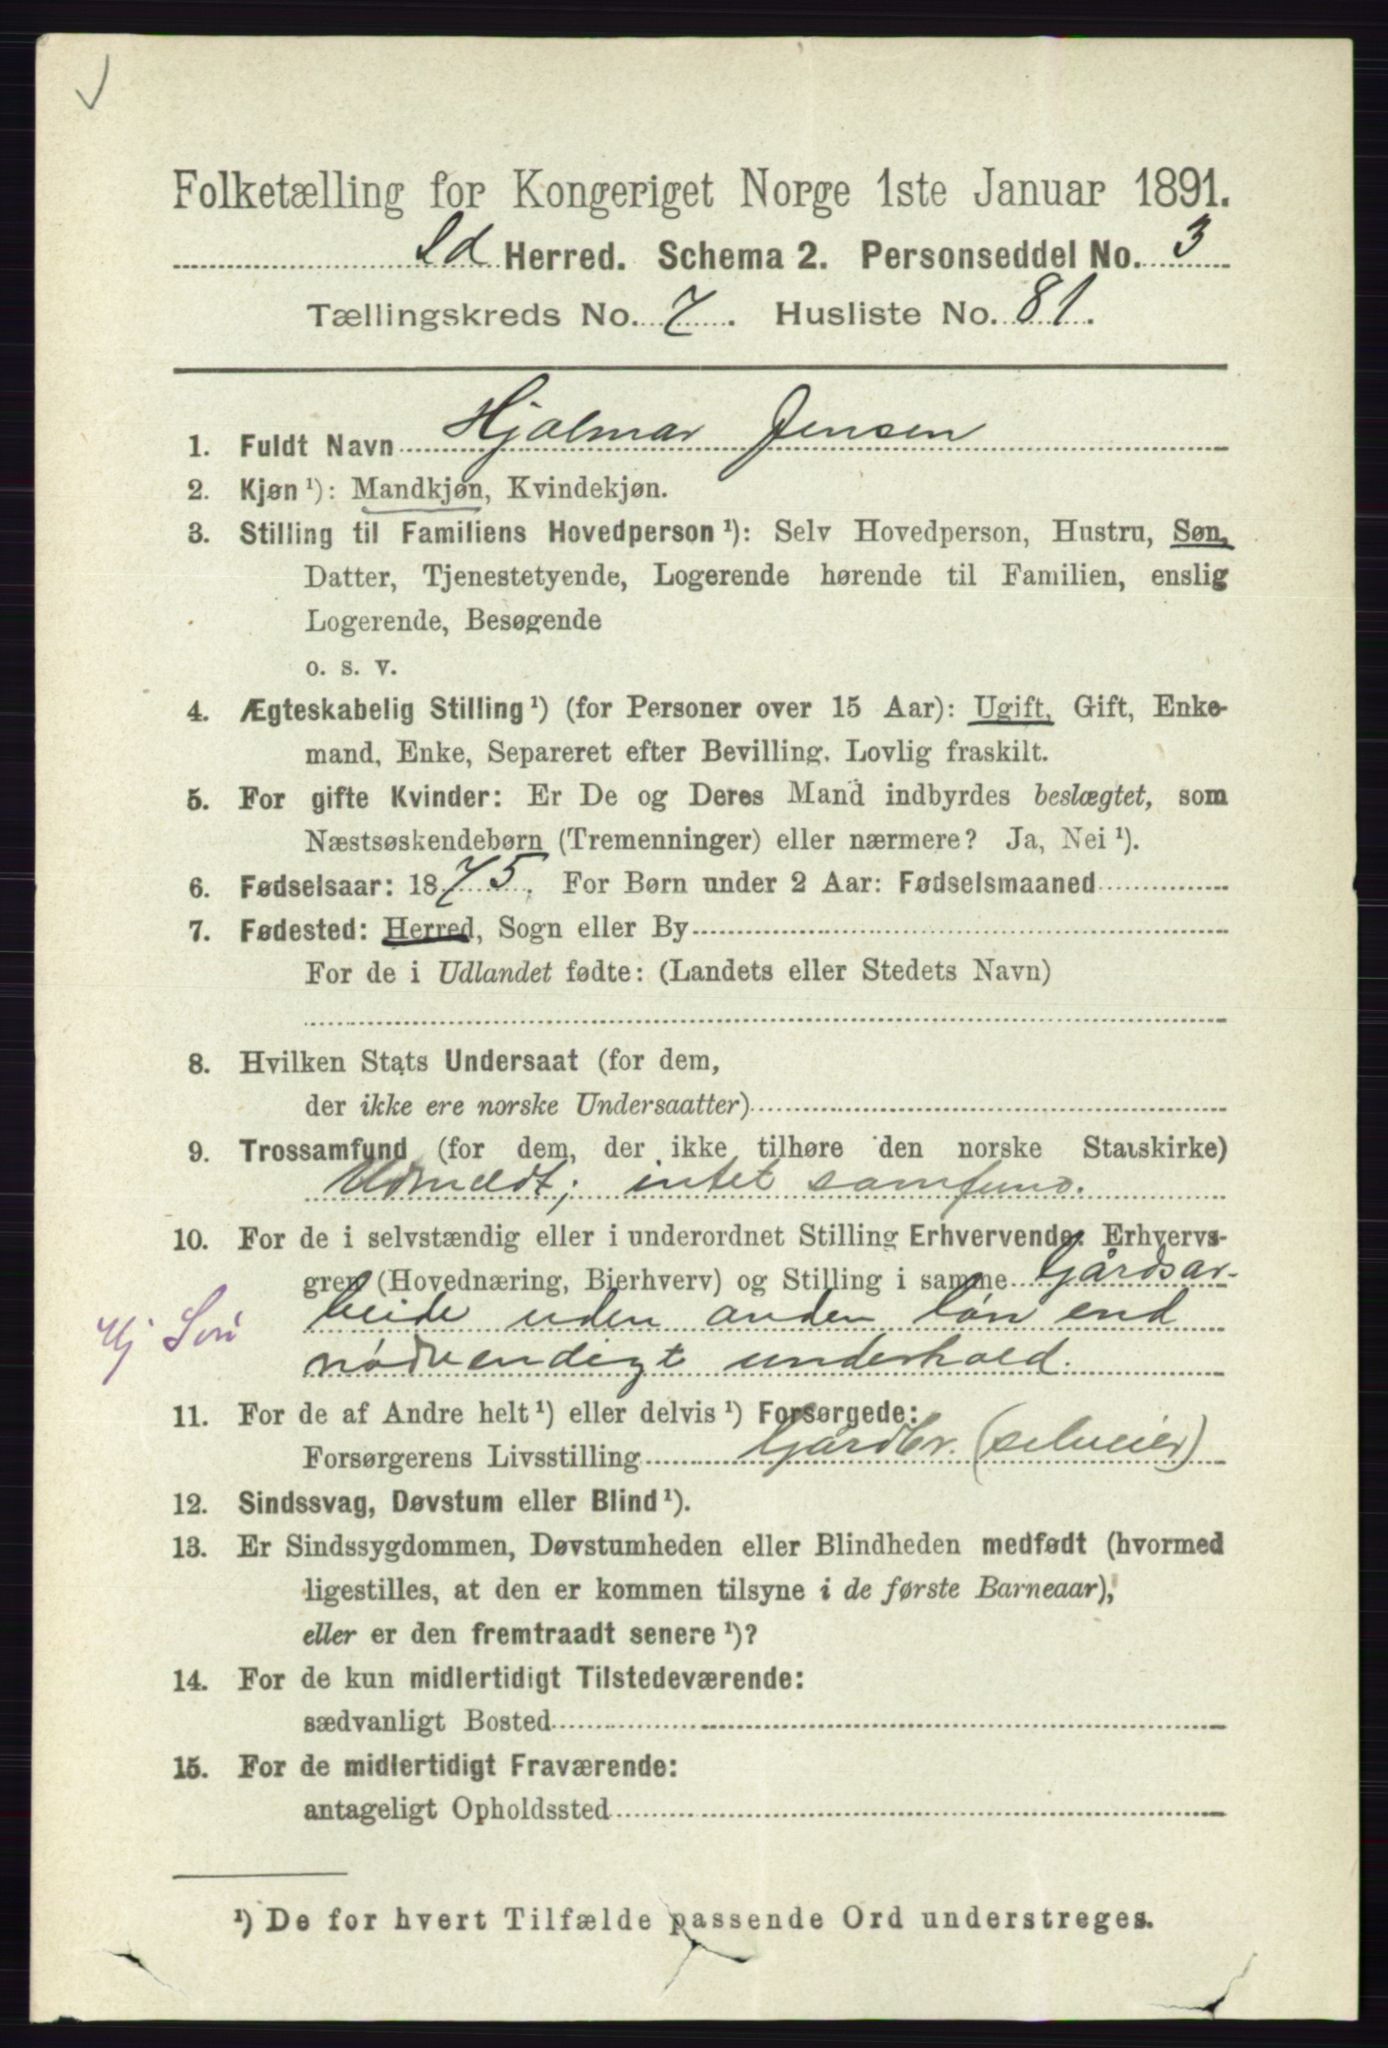 Folketælling for Kongeriget Norge 1ste Januar 1891.
Id Herred. Schema 2. Personseddel No. 3
Tællingskreds No. 7. Husliste No. 81.
1. Fuldt Navn Hjalmar Jensen
2. Kjøn ¹): Mandkjøn, Kvindekjøn.
3. Stilling til Familiens Hovedperson ¹): Selv Hovedperson, Hustru, Søn,
Datter, Tjenestetyende, Logerende hørende til Familien, enslig
Logerende, Besøgende
o. s. v.
4. Ægteskabelig Stilling ¹) (for Personer over 15 Aar): Ugift, Gift, Enke-
mand, Enke, Separeret efter Bevilling. Lovlig fraskilt.
5. For gifte Kvinder: Er De og Deres Mand indbyrdes beslægtet, som
Næstsøskendebørn (Tremenninger) eller nærmere? Ja, Nei ¹).
6. Fødselsaar: 1875. For Børn under 2 Aar: Fødselsmaaned
7. Fødested: Herred, Sogn eller By
For de i Udlandet fødte: (Landets eller Stedets Navn)
8. Hvilken Stats Undersaat (for dem,
der ikke ere norske Undersaatter)
9. Trossamfund (for dem, der ikke tilhøre den norske Statskirke)
Udmeldt; intet samfund.
10. For de i selvstændig eller i underordnet Stilling Erhvervende: Erhvervs-
gren (Hovednæring, Bierhverv) og Stilling i samme Gårdsar-
beide uden anden løn end
Hj Søn
nødvendigt underhold.
11. For de af Andre helt ¹) eller delvis ¹) Forsørgede:
Forsørgerens Livsstilling Gårdbr. (selveier)
12. Sindssvag, Døvstum eller Blind ¹).
13. Er Sindssygdommen, Døvstumheden eller Blindheden medfødt (hvormed
ligestilles, at den er kommen tilsyne i de første Barneaar),
eller er den fremtraadt senere ¹)?
14. For de kun midlertidigt Tilstedeværende:
sædvanligt Bosted
15. For de midlertidigt Fraværende:
antageligt Opholdssted
¹) De for hvert Tilfælde passende Ord understreges.